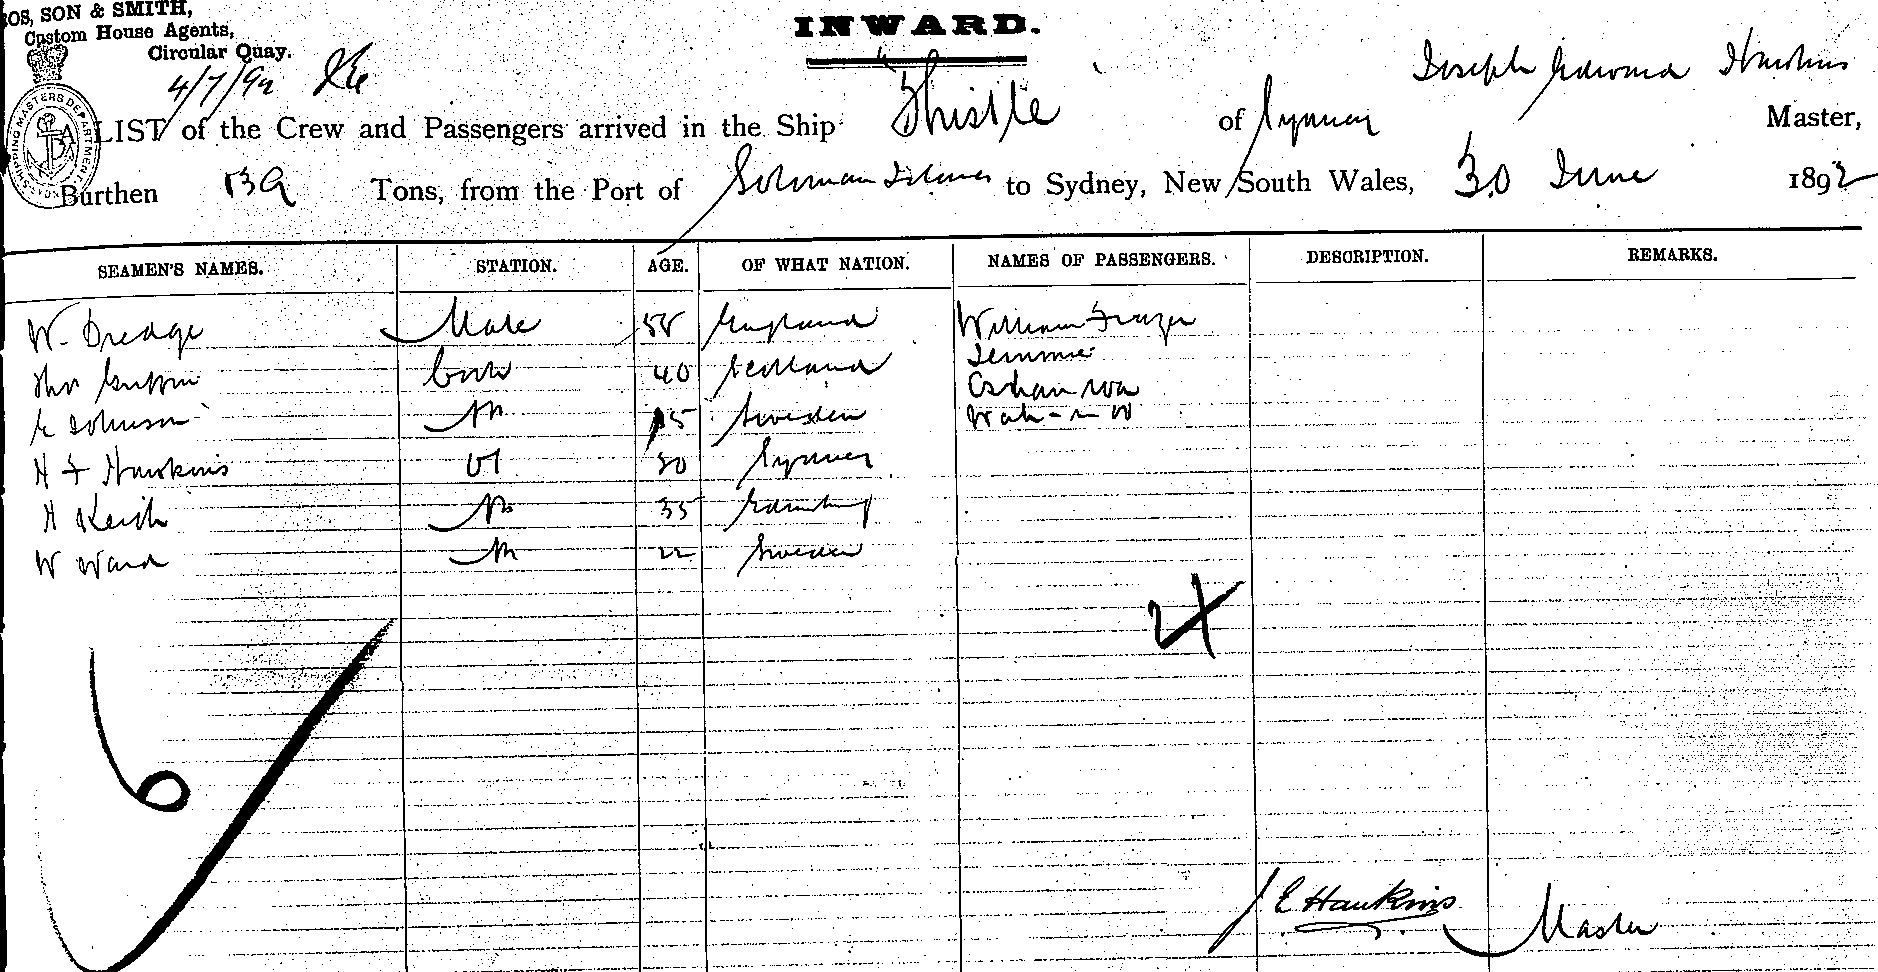 OS, SON & SMITH,
Custom House Agents,
Circular Quay.
4/7/92
INWARD.
Joseph Edward Hawkins
LIST of the Crew and Passengers arrived in the Ship Thistle of Sydney Master,
Burthen 139 Tons, from the Port of Solomon Islands to Sydney, New South Wales, 30 June 1892
SHIPPING MASTERS DEPARTMENT
SEAMEN'S NAMES. STATION. AGE. OF WHAT NATION. NAMES OF PASSENGERS. DESCRIPTION. REMARKS.
W. Dredge Mate 55 England William Frazer
Thos Griffin Cook 40 Scotland Jemmie
Johnson AB Sweden
H F Hawkins OS Sydney
H Keith AB 35
W Ward AB 22 Sweden
4
6
J E Hawkins Master